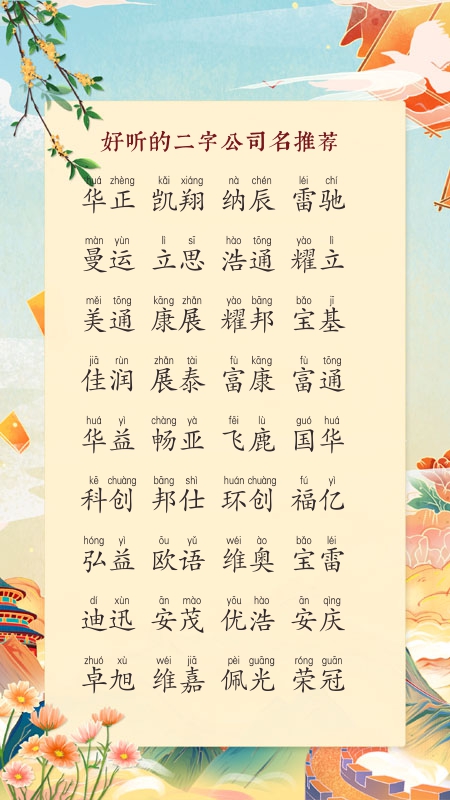 好听的二字公司名推荐
huá zhèng kǎi xiáng nà chén léi chí
华正 凯翔 纳辰 雷驰
màn yùn lì sī hào tōng yào lì
曼运 立思 浩通 耀立
měi tōng kāng zhǎn yào bāng bǎo jī
美通 康展 耀邦 宝基
jiā rùn zhǎn tài fù kāng fù tōng
佳润 展泰 富康 富通
huá yì chàng yà fēi lù guó huá
华益 畅亚 飞鹿 国华
kē chuàng bāng shì huán chuàng fú yì
科创 邦仕 环创 福亿
hóng yì ōu yǔ wéi ào bǎo léi
弘益 欧语 维奥 宝雷
dí xùn ān mào yōu hào ān qìng
迪迅 安茂 优浩 安庆
zhuó xù wéi jiā pèi guāng róng guān
卓旭 维嘉 佩光 荣冠